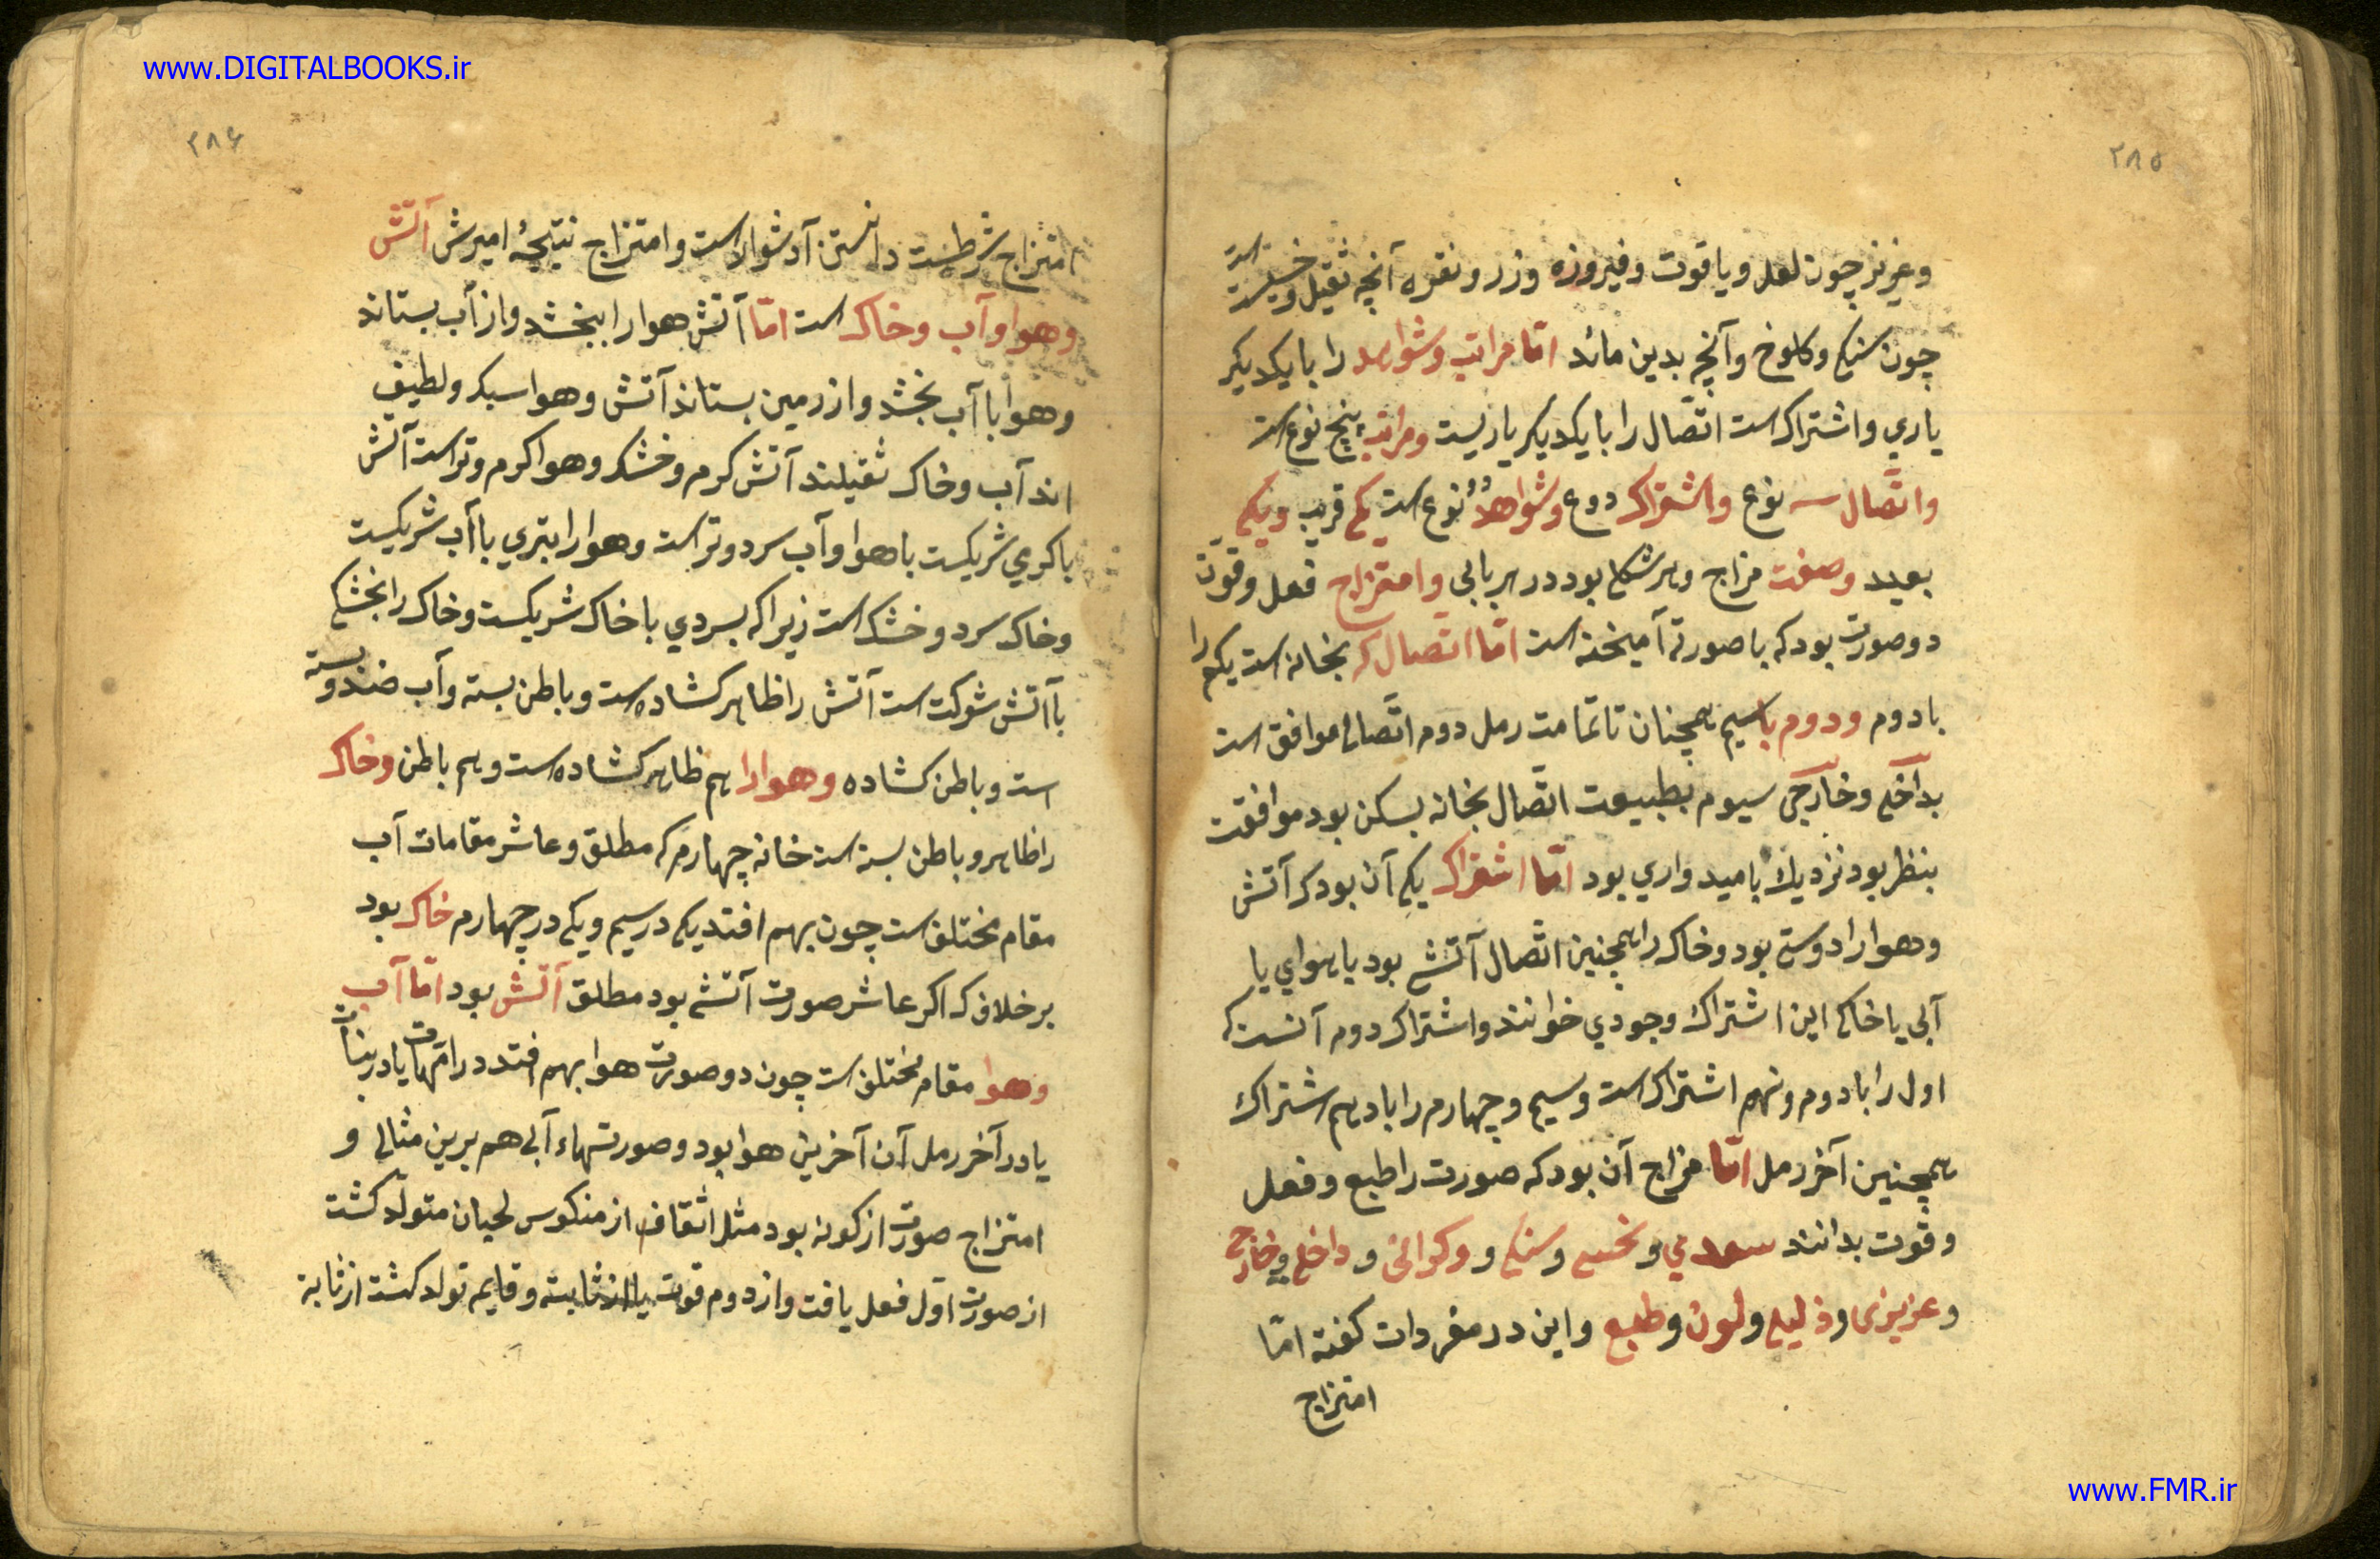 www.DIGITALBOOKS.ir
۲۸۵
وعزیز چون لعل ویاقوت وفیروزه وزر ونقره آنچه ثقیل وخسیس است
چون سنک وکلوخ وآنچه بدین مائد امّا مراتب وشواهد را بایکدیکر
یاری واشتراک است اتّصال را بایکدیکر یاریست ومراتب پنج نوع است
واتّصال سه نوع واشتراک دوع وشواهد دو نوع است یکی قریب ویکی
بعید وصفت مزاج وهر شکلی بود در هر بابی وامتزاج فعل وقوّت
دو صورت بود که با صورتی آمیخته است امّا اتّصال که بخانه است یکم را
با دوم ودوم با سیم همچنان تا تمامت رمل دوم اتّصال موافق است
بداخلی وخارجی سیوم بطبیعت اتّصال بخانه بسکن بود موافقت
بنظر بود نزدیک بامیدواری بود امّا اشتراک یکی آن بود که آتش
وهوا را دوستی بود وخاک را همچنین اتّصال آتشی بود یا هوای یا
آبی یا خاکی این اشتراک وجودی خوانند واشتراک دوم آنست که
اول را با دوم ونهم اشتراک است وسیم وچهارم را با دهم اشتراک
همچنین آخر رمل امّا مزاج آن بود که صورت را طبع وفعل
وقوّت بدانند سعدی ونحسی وسنکی ووکرانی وداخلی وخارجی
وعزیزی وذلیلی ولون وطبع واین در مفردات کفته امّا
امتزاج
۲۸۶
امتزاج شرطست دانستن آن دشوار است وامتزاج نتیجۀ امیرش آتش
وهوا وآب وخاک است امّا آتش هوا را ببخشد واز آب بستاند
وهوا با آب بخشد واز زمین بستاند آتش وهوا سبک ولطیف
اند آب وخاک ثقیلند آتش کرم وخشک وهوا کرم وتر است آتش
باکری شریکست با هوا وآب سرد وتر است وهوا را بتری با آب شریکیست
وخاک سرد وخشک است زیرا که بسردی با خاک شریکست وخاک را بخشکی
با آتش شرکت است آتش را ظاهر کشاده است وباطن بسته وآب ضد وبسته
است وباطن کشاده وهوا را هم ظاهر کشاده است وهم باطن وخاک
را ظاهر وباطن بسته است خانه چهارم که مطلق وعاشر مقامات آب
مقام مختلف است چون بهم افتد یکی در سیم ویکی در چهارم خاک بود
بر خلاف که اکر عاشر صورت آتشی بود مطلق آتش بود امّا آب
وهوا مقام مختلف است چون دو صورت هوا بهم افتد در امّهات یا در بنات
یا در آخر رمل آن آخرین هوا بود وصورتهاء آبی هم برین مثال و
امتزاج صورت از کونه بود مثل اثقاف از منکوس لحیان متولّد کشت
از صورت اوّل فعل یافت واز دوم قوت یا از ثابته وقایم تولد کشت از ثابه
www.FMR.ir